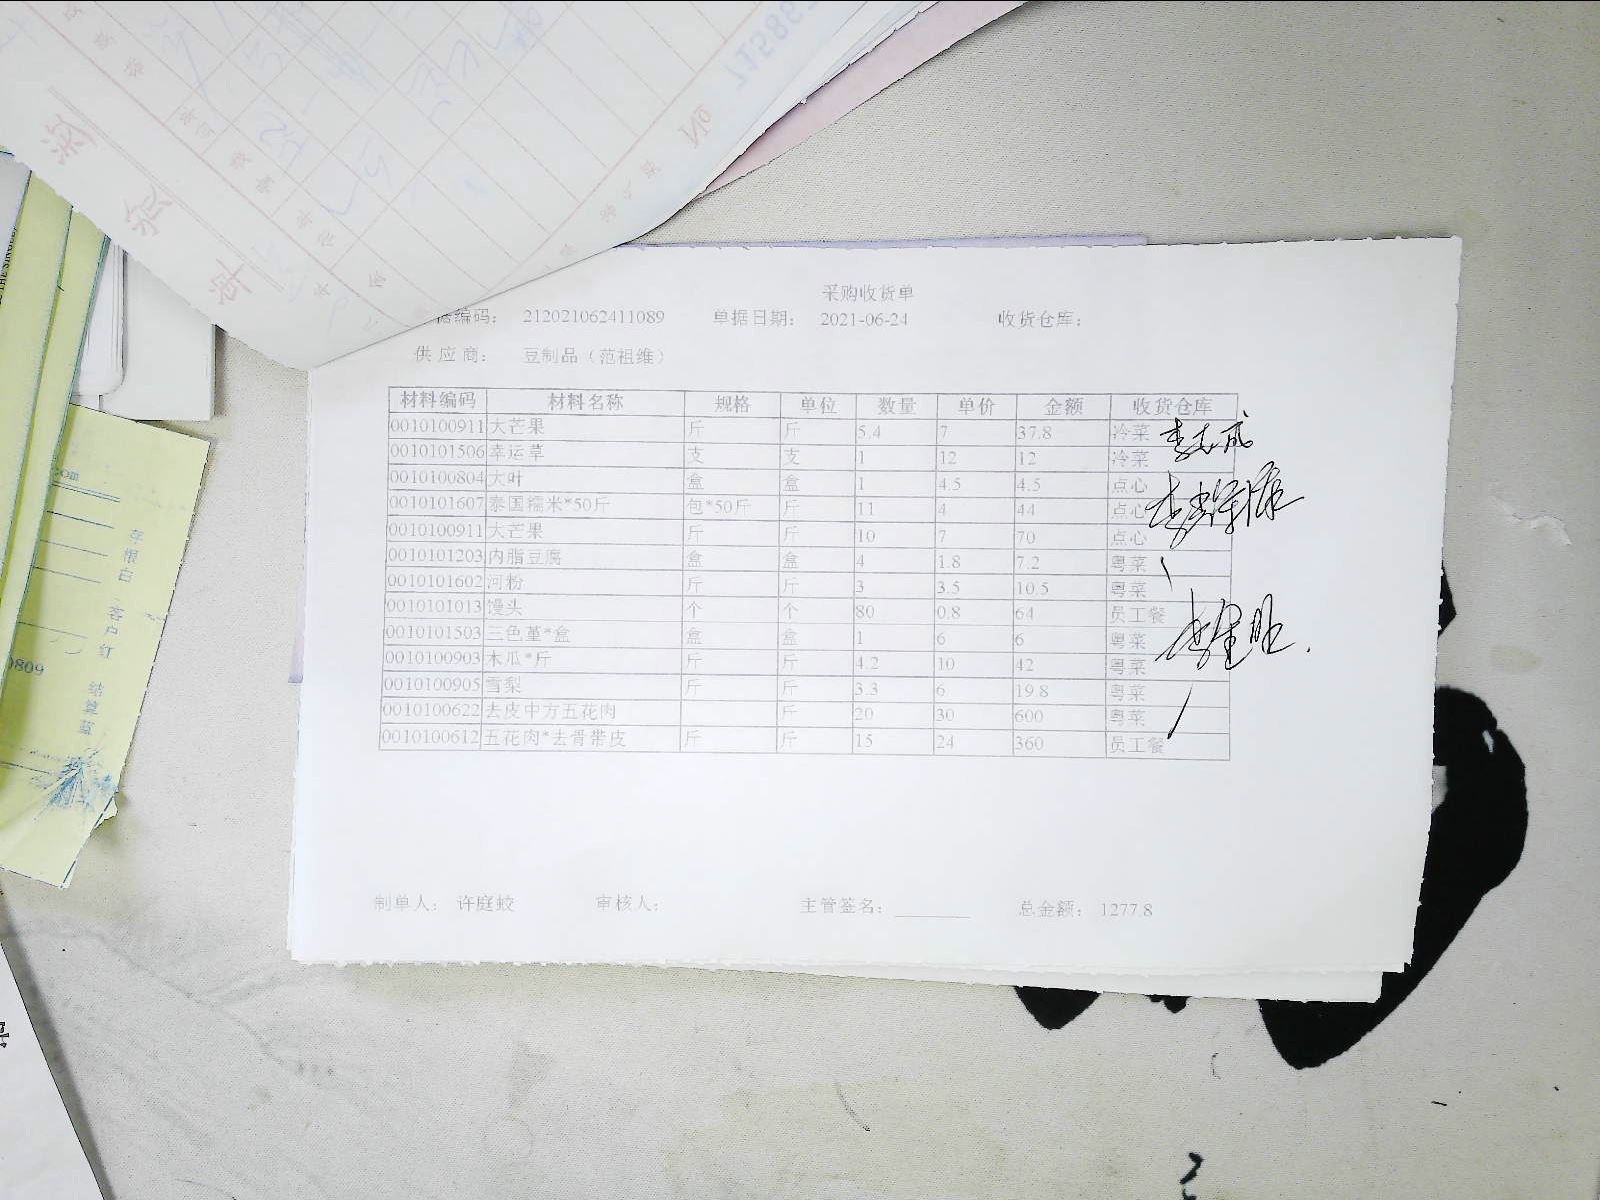 采购收货单
据编码： 212021062411089 单据日期： 2021-06-24 收货仓库：
供应商： 豆制品（范祖维）
材料编码 材料名称 规格 单位 数量 单价 金额 收货仓库
0010100911 大芒果 斤 斤 5.4 7 37.8 冷菜
0010101506 幸运草 支 支 1 12 12 冷菜
0010100804 大叶 盒 盒 1 4.5 4.5 点心
0010101607 泰国糯米*50斤 包*50斤 斤 11 4 44 点心
0010100911 大芒果 斤 斤 10 7 70 点心
0010101203 内脂豆腐 盒 盒 4 1.8 7.2 粤菜
0010101602 河粉 斤 斤 3 3.5 10.5 粤菜
0010101013 馒头 个 个 80 0.8 64 员工餐
0010101503 三色堇*盒 盒 盒 1 6 6 粤菜
0010100903 木瓜*斤 斤 斤 4.2 10 42 粤菜
0010100905 雪梨 斤 斤 3.3 6 19.8 粤菜
0010100622 去皮中方五花肉 斤 20 30 600 粤菜
0010100612 五花肉*去骨带皮 斤 斤 15 24 360 员工餐
制单人： 许庭蛟 审核人： 主管签名： 总金额： 1277.8
车根白
客户红
结算蓝
0809